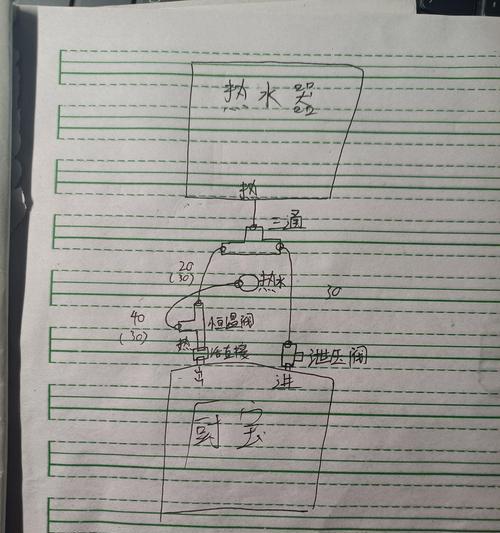 热水器
热
三通
20
(30)
热水
30
40
(30)
恒温阀
热
活连接
泄压阀
出
进